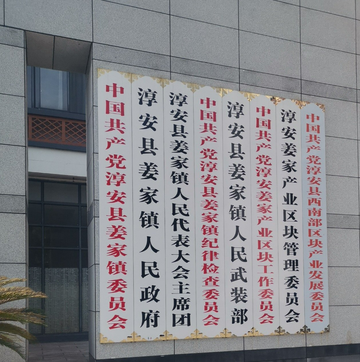 中国共产党淳安县姜家镇委员会
淳安县姜家镇人民政府
淳安县姜家镇人民代表大会主席团
中国共产党淳安县姜家镇纪律检查委员会
淳安县姜家镇人民武装部
中国共产党淳安姜家产业区块工作委员会
淳安姜家产业区块管理委员会
中国共产党淳安县西南部区块产业发展委员会